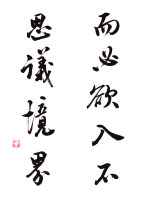 而必欲入不
思議境界